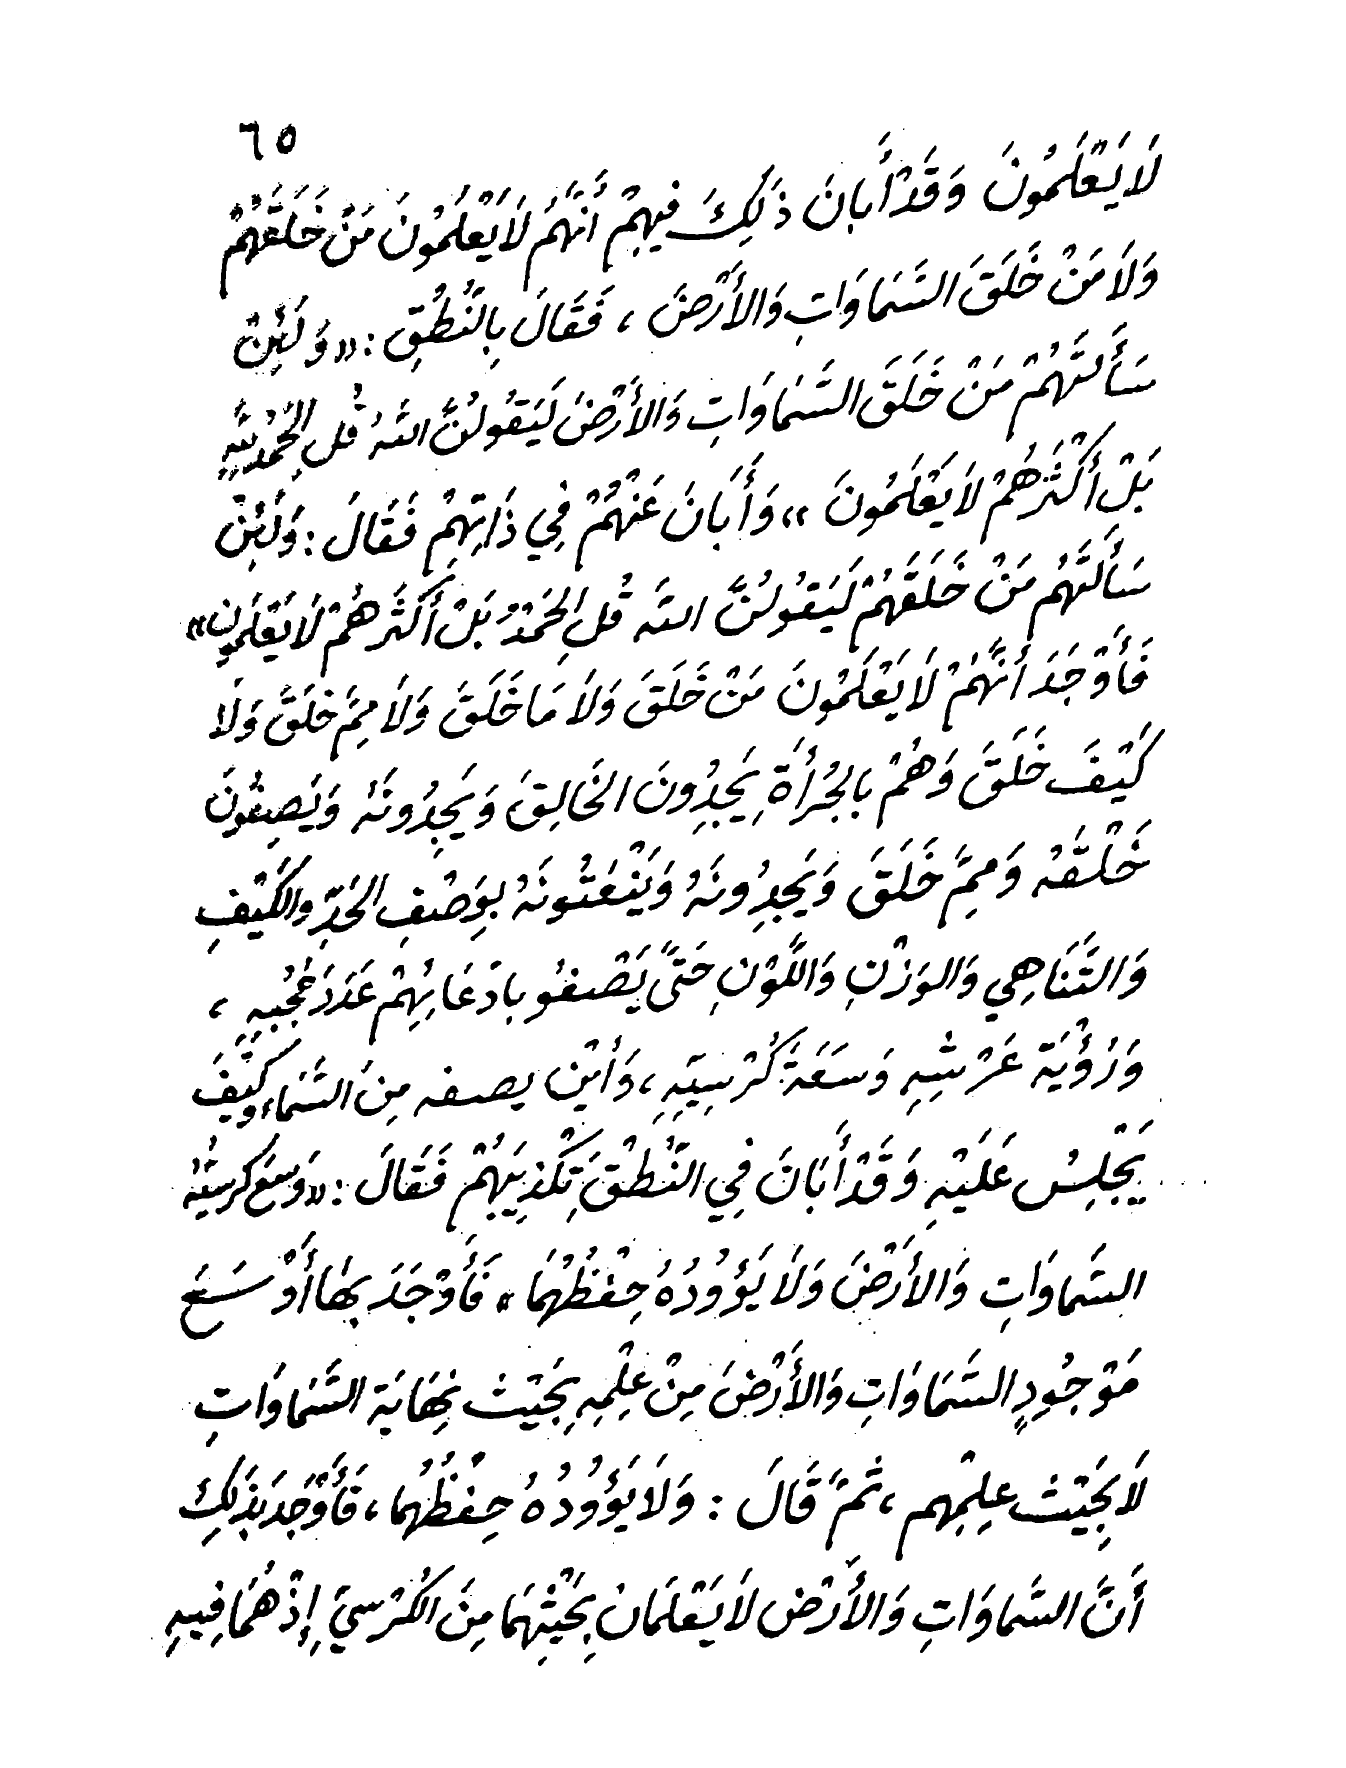 ٦٥
لَا يَعْلَمُونَ وَقَدْ أَبَانَ ذَلِكَ فِيهِمْ أَنَّهُمْ لَا يَعْلَمُونَ مَنْ خَلَقَهُمْ
وَلَا مَنْ خَلَقَ السَّمَاوَاتِ وَالأَرْضَ ، فَقَالَ بِالنُّطُقِ : « وَلَئِنْ
سَأَلْتَهُمْ مَنْ خَلَقَ السَّمَاوَاتِ وَالأَرْضَ لَيَقُولُنَّ اللَّهُ قُلِ الحَمْدُ لِلَّهِ
بَلْ أَكْثَرُهُمْ لَا يَعْلَمُونَ » وَأَبَانَ عَنْهُمْ فِي ذَاتِهِمْ فَقَالَ : وَلَئِنْ
سَأَلْتَهُمْ مَنْ خَلَقَهُمْ لَيَقُولُنَّ اللَّه قُلِ الحَمْدُ بَلْ أَكْثَرُهُمْ لَا يَعْلَمُون »
فَأَوْجَدَ أَنَّهُمْ لَا يَعْلَمُونَ مَنْ خَلَقَ وَلَا مَا خَلَقَ وَلَا مِمَّ خَلَقَ وَلَا
كَيْفَ خَلَقَ وَهُمْ بِالجُرْأَةِ يَجِدُونَ الخَالِقَ وَيَجِدُونَهُ وَيَصِفُونَ
خَلْقَهُ وَمِمَّ خَلَقَ وَيَجِدُونَهُ وَيَنْعَتُونَهُ بِوَصْفِ الحَدِّ وَالكَيْفِ
وَالتَّنَاهِي وَالوَزْنِ وَاللَّوْنِ حَتَّى يَصْفُو بِادِّعَائِهِمْ عَدَدَ حُجُبِهِ ،
وَرُؤْيَةَ عَرْشِهِ وَسَعَةَ كُرْسِيِّهِ ، وَأَيْنَ يصفه مِنَ السَّمَاء وكَيْفَ
يَجْلِسُ عَلَيْهِ وَقَدْ أَبَانَ فِي النُّطْقِ تَكْذِيبَهُمْ فَقَالَ : « وَسِعَ كُرْسِيُّهُ
السَّمَاوَاتِ وَالأَرْضَ وَلَا يَؤُودُهُ حِفْظُهُمَا » فَأَوْجَدَ بِهَا أَوْسَعَ
مَوْجُودٍ السَّمَاوَاتِ وَالأَرْضَ مِنْ عِلْمِهِ بِحَيْثُ نِهَايَة السَّمَاوَاتِ
لَا بِحَيْثُ عِلْمِهِم ، ثُمَّ قَالَ : وَلَا يَؤُودُهُ حِفْظُهُمَا ، فَأَوْجَدَ بِذَلِكَ
أَنَّ السَّمَاوَاتِ وَالأَرْض لَا يَعْلَمَانِ بِحَيْثِهِمَا مِنَ الكُرْسيِّ إِذْ هُمَا فِيهِ